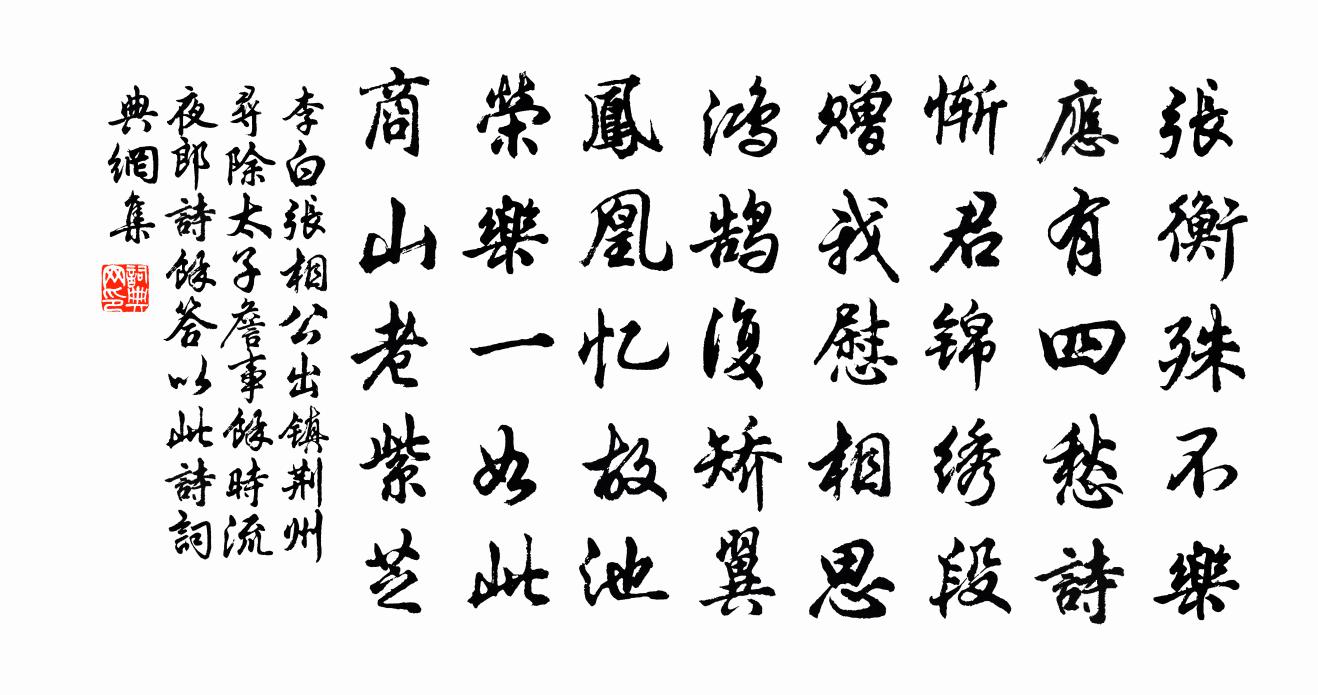 張衡殊不樂
應有四愁詩
慚君锦绣段
赠我慰相思
鸿鹄復矫翼
鳳凰忆故池
榮樂一如此
商山老紫芝
李白張相公出镇荆州
尋除太子詹事餘時流
夜郎詩餘答以此詩詞
典網集
詞典
网印